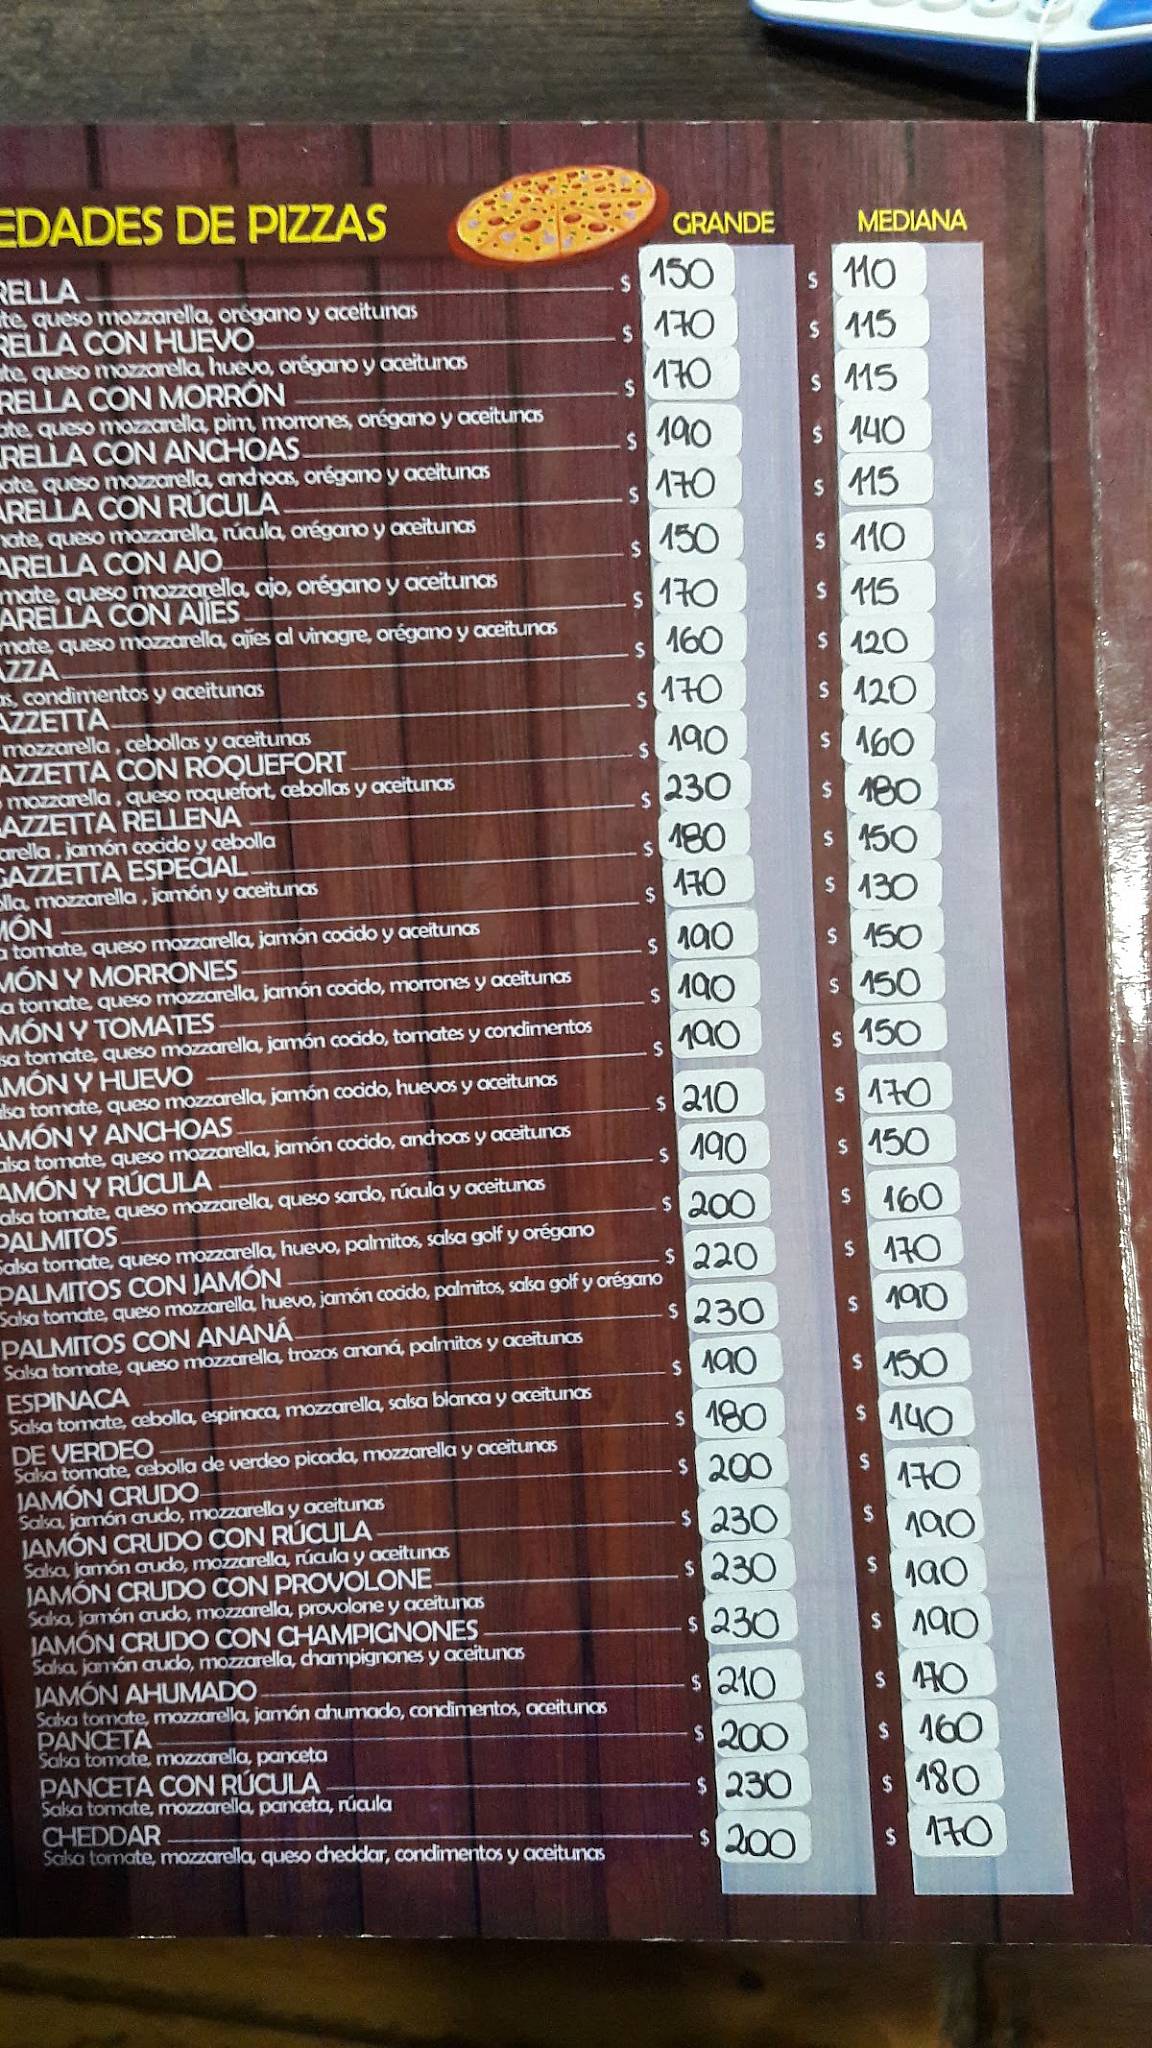 EDADES DE PIZZAS GRANDE MEDIANA
RELLA $ 150 $ 110
te, queso mozzarella, orégano y aceitunas
RELLA CON HUEVO $ 170 $ 115
te, queso mozzarella, huevo, orégano y aceitunas
RELLA CON MORRÓN $ 170 $ 115
ate, queso mozzarella, pim, morrones, orégano y aceitunas
RELLA CON ANCHOAS $ 190 $ 140
ate, queso mozzarella, anchoas, orégano y aceitunas
ARELLA CON RÚCULA $ 170 $ 115
nate, queso mozzarella, rúcula, orégano y aceitunas
ARELLA CON AJO $ 150 $ 110
mate, queso mozzarella, ajo, orégano y aceitunas
ARELLA CON AJÍES $ 170 $ 115
mate, queso mozzarella, ajíes al vinagre, orégano y aceitunas
AZZA $ 160 $ 120
as, condimentos y aceitunas
AZZETTA $ 170 $ 120
mozzarella , cebollas y aceitunas
AZZETTA CON ROQUEFORT $ 190 $ 160
mozzarella , queso roquefort, cebollas y aceitunas
AZZETTA RELLENA $ 230 $ 180
arella , jamón cocido y cebolla
GAZZETTA ESPECIAL $ 180 $ 150
lla, mozzarella , jamón y aceitunas
MÓN $ 170 $ 130
a tomate, queso mozzarella, jamón cocido y aceitunas
MÓN Y MORRONES $ 190 $ 150
sa tomate, queso mozzarella, jamón cocido, morrones y aceitunas
MÓN Y TOMATES $ 190 $ 150
sa tomate, queso mozzarella, jamón cocido, tomates y condimentos
AMÓN Y HUEVO $ 190 $ 150
lsa tomate, queso mozzarella, jamón cocido, huevos y aceitunas
AMÓN Y ANCHOAS $ 210 $ 170
alsa tomate, queso mozzarella, jamón cocido, anchoas y aceitunas
AMÓN Y RÚCULA $ 190 $ 150
alsa tomate, queso mozzarella, queso sardo, rúcula y aceitunas
PALMITOS $ 200 $ 160
Salsa tomate, queso mozzarella, huevo, palmitos, salsa golf y orégano
PALMITOS CON JAMÓN $ 220 $ 170
Salsa tomate, queso mozzarella, huevo, jamón cocido, palmitos, salsa golf y orégano
PALMITOS CON ANANÁ $ 230 $ 190
Salsa tomate, queso mozzarella, trozos ananá, palmitos y aceitunas
ESPINACA $ 190 $ 150
Salsa tomate, cebolla, espinaca, mozzarella, salsa blanca y aceitunas
DE VERDEO $ 180 $ 140
Salsa tomate, cebolla de verdeo picada, mozzarella y aceitunas
JAMÓN CRUDO $ 200 $ 170
Salsa, jamón crudo, mozzarella y aceitunas
JAMÓN CRUDO CON RÚCULA $ 230 $ 190
Salsa, jamón crudo, mozzarella, rúcula y aceitunas
JAMÓN CRUDO CON PROVOLONE $ 230 $ 190
Salsa, jamón crudo, mozzarella, provolone y aceitunas
JAMÓN CRUDO CON CHAMPIGNONES $ 230 $ 190
Salsa, jamón crudo, mozzarella, champignones y aceitunas
JAMÓN AHUMADO $ 210 $ 170
Salsa tomate, mozzarella, jamón ahumado, condimentos, aceitunas
PANCETA $ 200 $ 160
Salsa tomate, mozzarella, panceta
PANCETA CON RÚCULA $ 230 $ 180
Salsa tomate, mozzarella, panceta, rúcula
CHEDDAR $ 200 $ 170
Salsa tomate, mozzarella, queso cheddar, condimentos y aceitunas